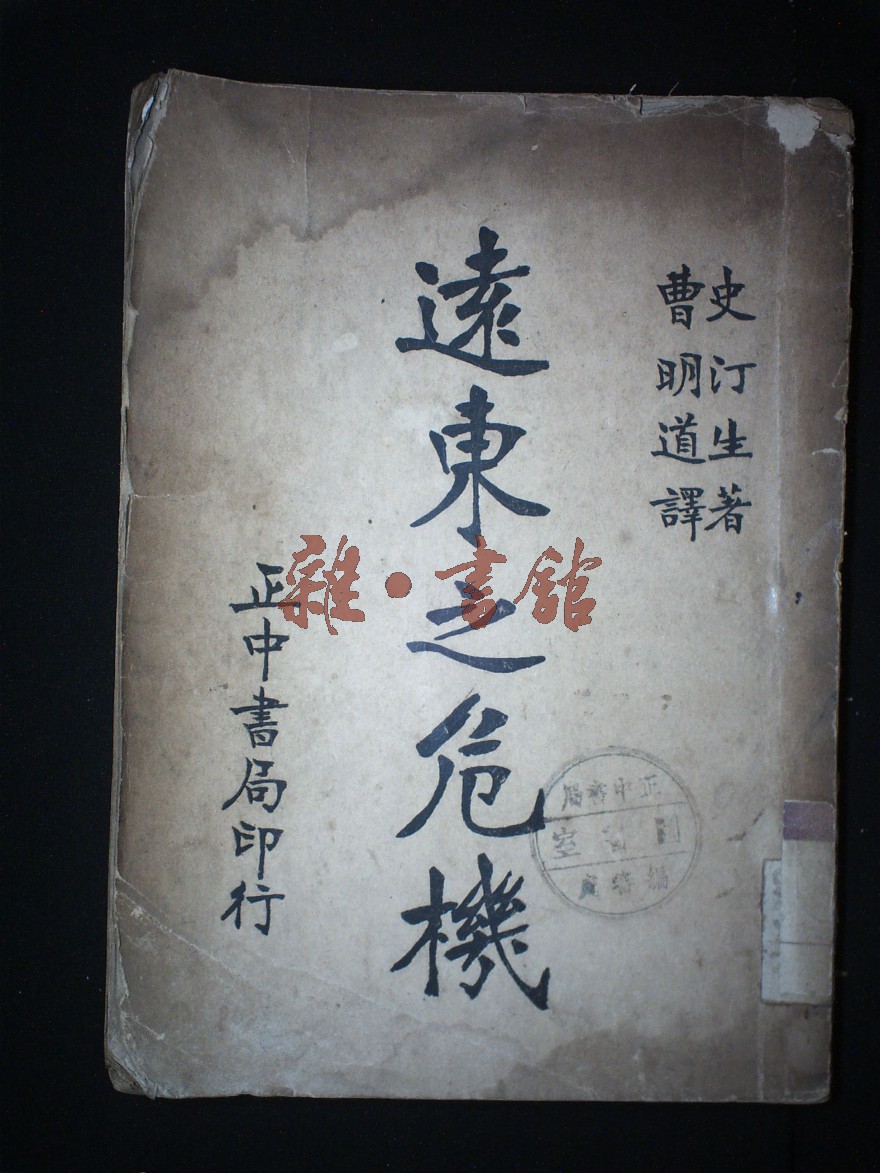 史汀生著
曹明道譯
遠東之危機
正中書局印行
雜·書館
正中書局
圖書室
編審處